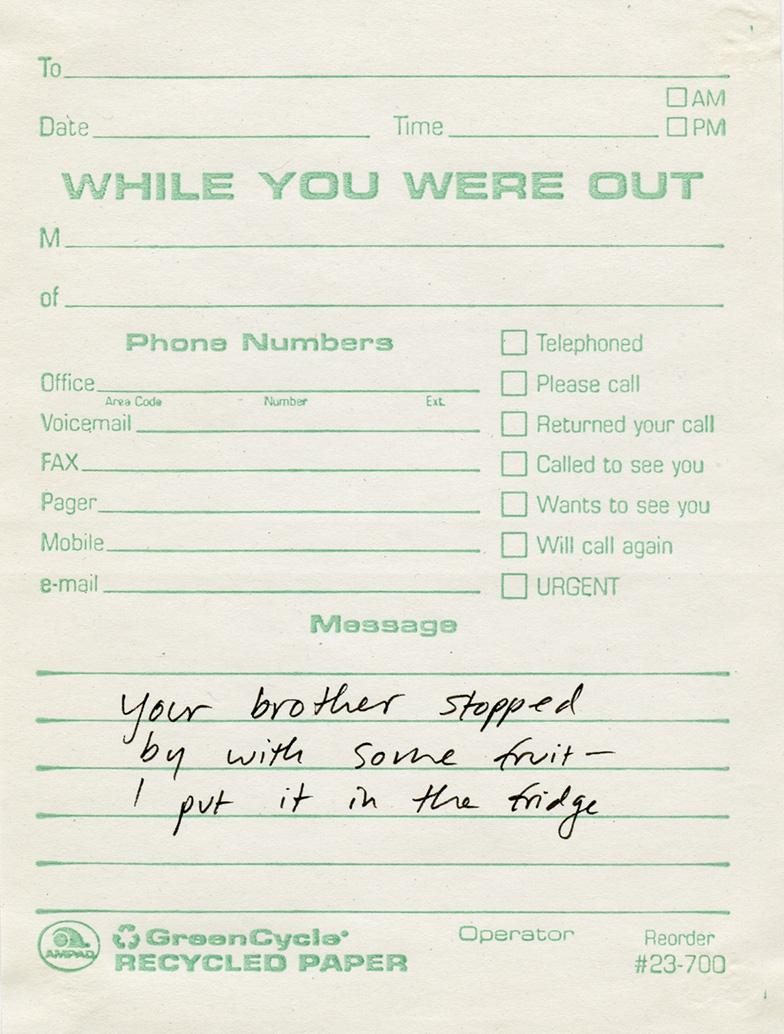 To
AM
Date Time PM
WHILE YOU WERE OUT
M
of
Phone Numbers
Telephoned
Office
Please call
Area Code Number Ext.
Voicemail
Returned your call
FAX
Called to see you
Pager
Wants to see you
Mobile
Will call again
e-mail
URGENT
Message
Your brother stopped
by with some fruit—
I put it in the fridge
AMPAD
GreenCycle®
RECYCLED PAPER
Operator
Reorder
#23-700